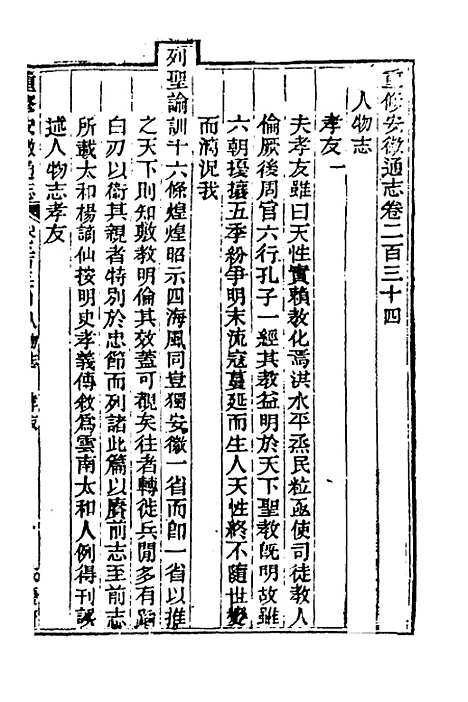 重修安徽通志卷二百三十四
人物志
孝友一
夫孝友雖曰天性實賴教化焉洪水平烝民粒亟使司徒教人
倫厥後周官六行孔子一經其教益明於天下聖教旣明故雖
六朝擾攘五季紛爭明末流寇蔓延而生人天性終不隨世變
而漓況我
列聖諭訓十六條煌煌昭示四海風同豈獨安徽一省而卽一省以推
之天下則知敷教明倫其效蓋可覩矣往者轉徙兵閒多有蹈
白刃以衞其親者特別於忠節而列諸此篇以賡前志至前志
所載太和楊謫仙按明史孝義傳敘爲雲南太和人例得刊誤
述人物志孝友
重修安徽通志
人物志 孝友